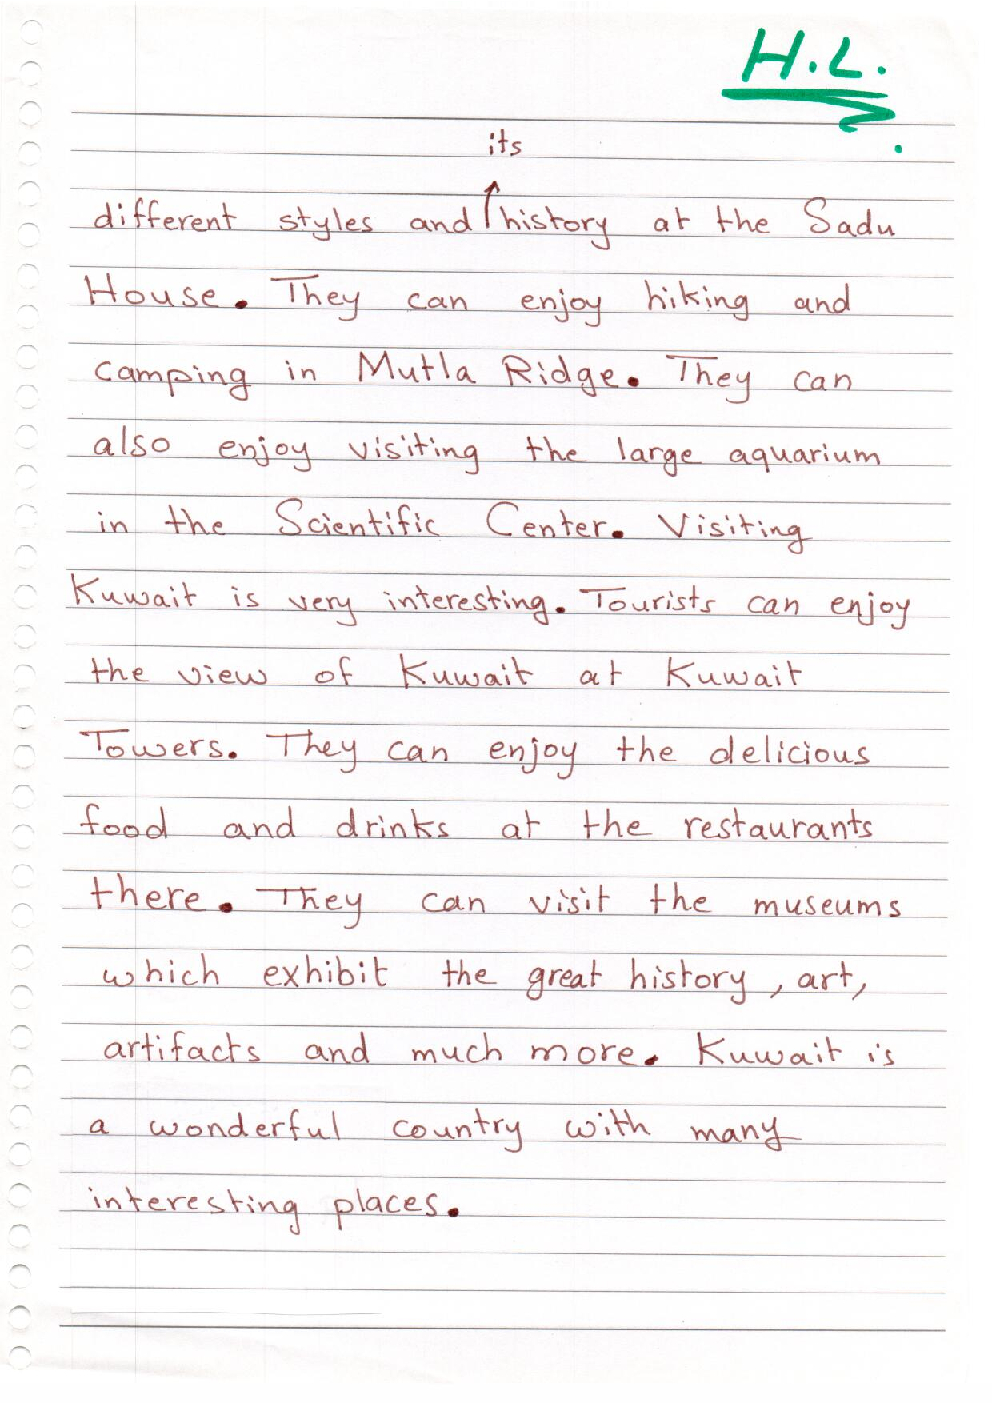 H.L.
its
different styles and history at the Sadu
House. They can enjoy hiking and
camping in Mutla Ridge. They can
also enjoy visiting the large aquarium
in the Scientific Center. Visiting
Kuwait is very interesting. Tourists can enjoy
the view of Kuwait at Kuwait
Towers. They can enjoy the delicious
food and drinks at the restaurants
there. They can visit the museums
which exhibit the great history, art,
artifacts and much more. Kuwait is
a wonderful country with many
interesting places.